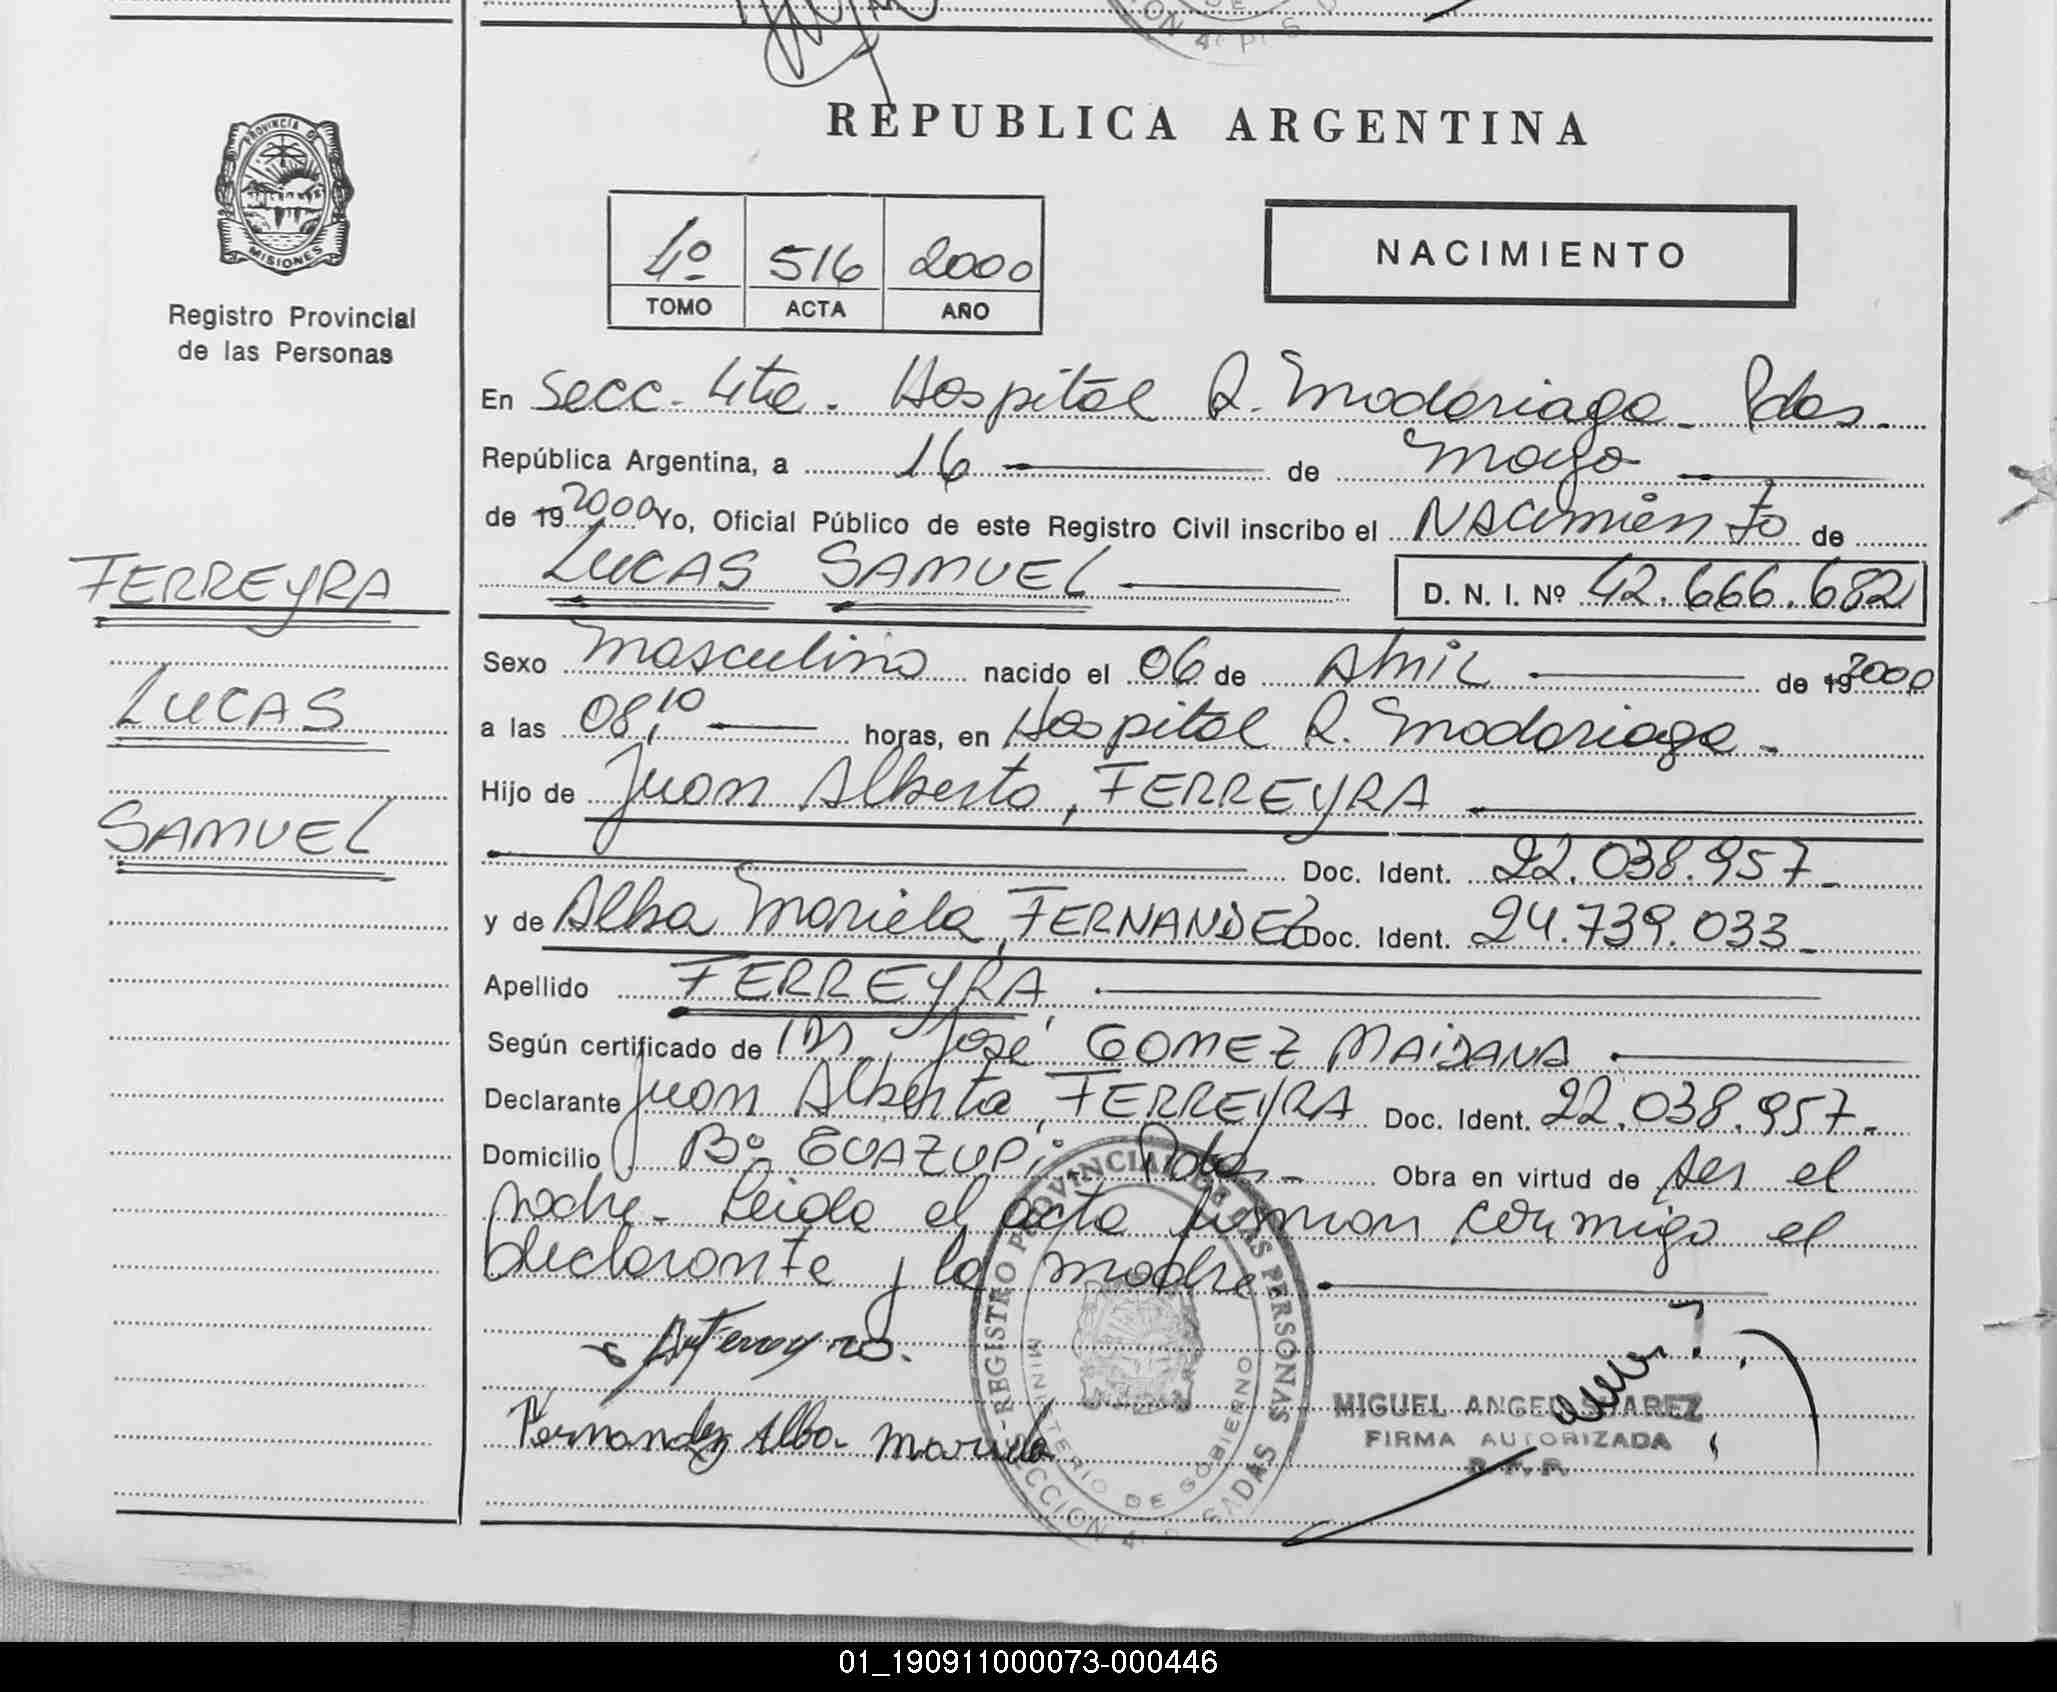 REPUBLICA ARGENTINA
PROVINCIA DE
MISIONES
Registro Provincial
de las Personas
4º 516 2000
TOMO ACTA AÑO
NACIMIENTO
En Secc. 4ta. Hospital R. Madariaga. Pdas.
República Argentina, a 16 de Mayo
de 19 2000 Yo, Oficial Público de este Registro Civil inscribo el NACimiento de
LUCAS SAMUEL D. N. I. Nº 42.666.682
FERREYRA
LUCAS
SAMUEL
Sexo Masculino nacido el 06 de Abril de 19 2000
a las 08,10 horas, en Hospital R. Madariaga.
Hijo de Juan Alberto, FERREYRA
Doc. Ident. 22.038.957.
y de Alba Mariela, FERNANDEZ Doc. Ident. 24.739.033.
Apellido FERREYRA
Según certificado de Dr. José GOMEZ MAIDANA
Declarante Juan Alberto, FERREYRA Doc. Ident. 22.038.957.
Domicilio Bº GUAZUPI Pdas. Obra en virtud de ser el
padre. Leida el acta firman conmigo el
declarante y la madre
Fernandez Alba Mariela
REGISTRO PROVINCIAL DE LAS PERSONAS
MINISTERIO DE GOBIERNO
MIGUEL ANGEL SUAREZ
FIRMA AUTORIZADA
R. P. P.
01_190911000073-000446